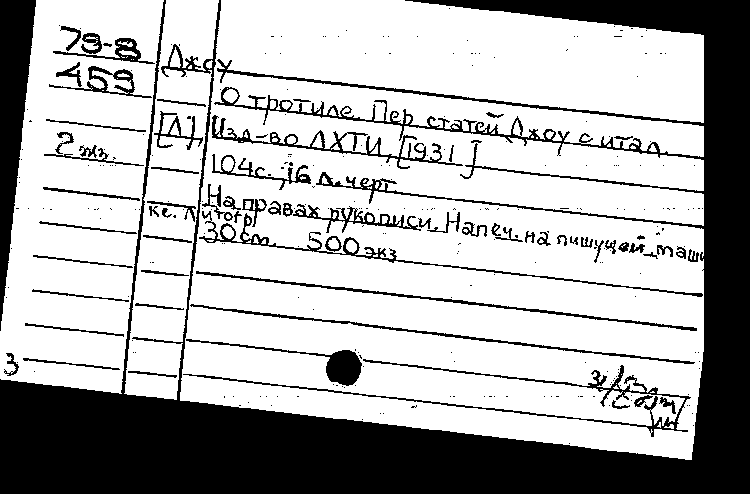 79-8
459
Джоу
О тротиле. Пер. статей Джоу с итал.
[Л], Изд-во ЛХТИ, [1931]
2 экз.
104с., 16 л. черт.
На правах рукописи. Напеч. на пишущей маши
ке. Литогр
30см. 500 экз
3